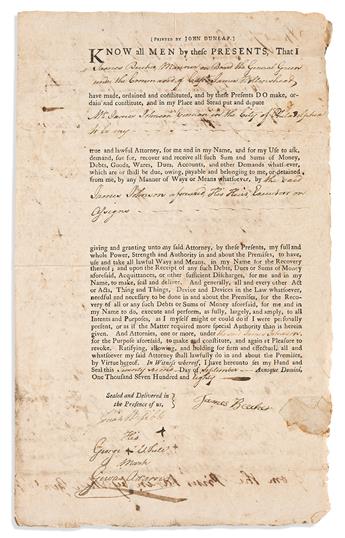 [PRINTED BY JOHN DUNLAP.]
KNOW all MEN by these PRESENTS, That I
James Mariner on Board the General Green
under the Command of Capt James
have made, ordained and constituted, and by these Presents DO make, or-
dain and constitute, and in my Place and Stead put and depute
Mr. James Johnson in the City of Philadelphia
to be my
true and lawful Attorney, for me and in my Name, and for my Use to ask,
demand, sue for, recover and receive all such Sum and Sums of Money,
Debts, Goods, Wares, Dues, Accounts, and other Demands whatsoever,
which are or shall be due, owing, payable and belonging to me, or detained
from me, by any Manner of Ways or Means whatsoever, by the said
James Johnson aforesaid His Heirs Executor or
Assigns
giving and granting unto my said Attorney, by these Presents, my full and
whole Power, Strength and Authority in and about the Premises, to have,
use and take all lawful Ways and Means, in my Name for the Recovery
thereof; and upon the Receipt of any such Debts, Dues or Sums of Money
aforesaid, Acquittances, or other sufficient Discharges, for me and in my
Name, to make, seal and deliver. And generally, all and every other Act
or Acts, Thing and Things, Device and Devices in the Law whatsoever,
needful and necessary to be done in and about the Premises, for the Reco-
very of all or any such Debts or Sums of Money aforesaid, for me and in
my Name to do, execute and perform, as fully, largely, and amply, to all
Intents and Purposes, as I myself might or could do if I were personally
present, or as if the Matter required more special Authority than is herein
given. And Attornies, one or more, under James Johnson
for the Purpose aforesaid, to make and constitute, and again at Pleasure to
revoke. Ratifying, allowing, and holding for firm and effectual, all and
whatsoever my said Attorney shall lawfully do in and about the Premises,
by Virtue hereof. In Witness whereof, I have hereunto set my Hand and
Seal this Twenty second Day of September Annoque Domini,
One Thousand Seven Hundred and Eighty
Sealed and Delivered in
the Presence of us,
James
His
George + White
Mark